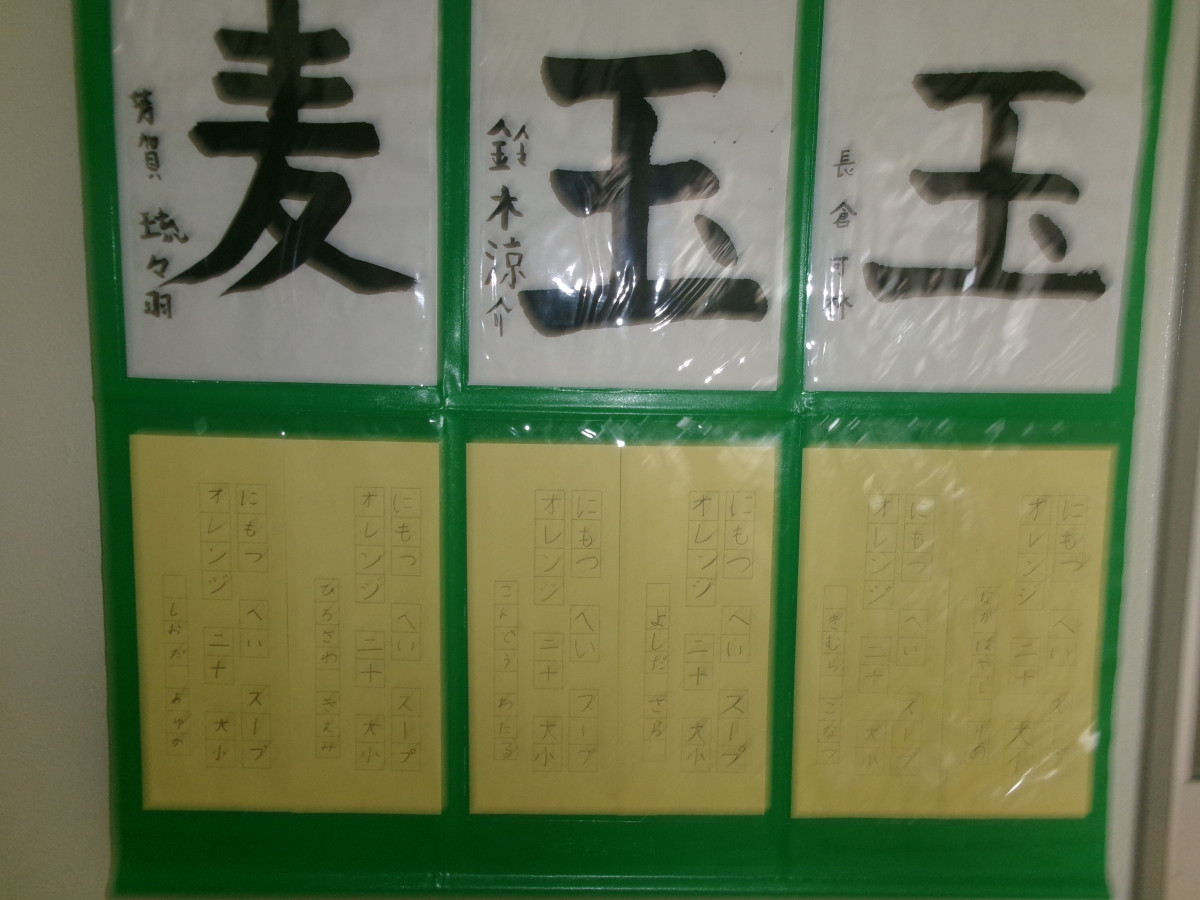 玉
長倉可林
玉
鈴木涼介
麦
芳賀琉々羽
にもつ へい スープ
オレンジ 二十 大小
にもつ へい スープ
オレンジ 二十 大小
きむら こなつ
にもつ へい スープ
オレンジ 二十 大小
よしだ さら
にもつ へい スープ
オレンジ 二十 大小
こんどう わたる
にもつ へい スープ
オレンジ 二十 大小
ひろさわ きえみ
にもつ へい スープ
オレンジ 二十 大小
しおだ あゆか